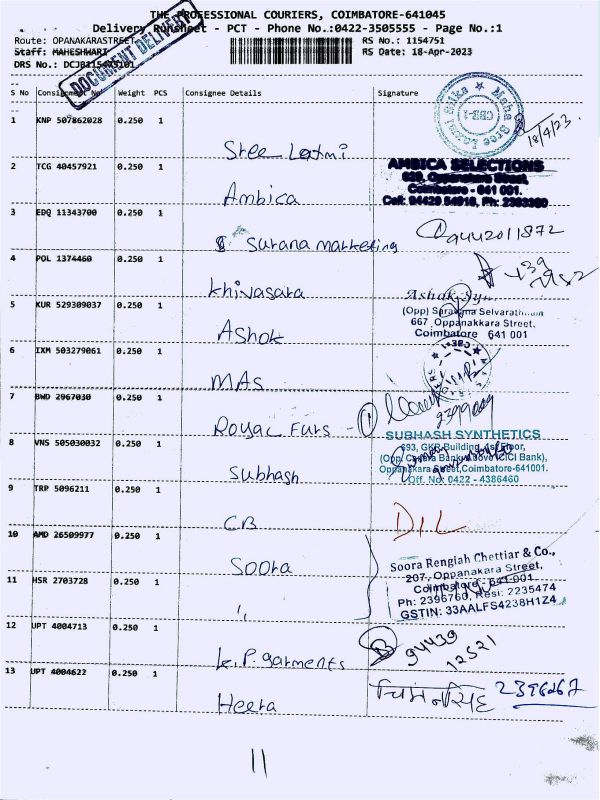 THE PROFESSIONAL COURIERS, COIMBATORE-641045
Delivery Runsheet - PCT - Phone No.:0422-3505555 - Page No.:1
Route: OPANAKARASTREET
RS No.: 1154751
Staff: MAHESHWARI
RS Date: 18-Apr-2023
DRS No.:
DOCUMENT DELIVERY
S No Consignment No Weight PCS Consignee Details Signature
1 KNP 507862028 0.250 1
Sree Laxmi
18/4/23.
2 TCG 40457921 0.250 1
Ambica
AMBICA SELECTIONS
Coimbatore - 641 001.
3 EDQ 11343700 0.250 1
Surana marketing
9442011872
4 POL 1374460 0.250 1
Khivasara
5 KUR 529309037 0.250 1
Ashok
(Opp)
667, Oppanakkara Street,
Coimbatore 641 001
6 IXM 503279061 0.250 1
MAS
CBE-1
7 BWD 2967030 0.250 1
Royal Furs - 1
8 VNS 505030032 0.250 1
Subhash
SUBHASH SYNTHETICS
693, GKR Building, 1st Floor,
(Opp. Canara Bank, above ICICI Bank),
Oppanakara Street, Coimbatore-641001.
Off. No: 0422 - 4386460
9 TRP 5096211 0.250 1
CB
D/L
10 AMD 26509977 0.250 1
Soora
Soora Rengiah Chettiar & Co.,
207, Oppanakara Street,
Coimbatore - 641 001
Ph: 2396760, Resi: 2235474
GSTIN: 33AALFS4238H1Z4
11 HSR 2703728 0.250 1
"
12 UPT 4004713 0.250 1
K.P. garments
94439
12521
13 UPT 4004622 0.250 1
Heera
2396267
11